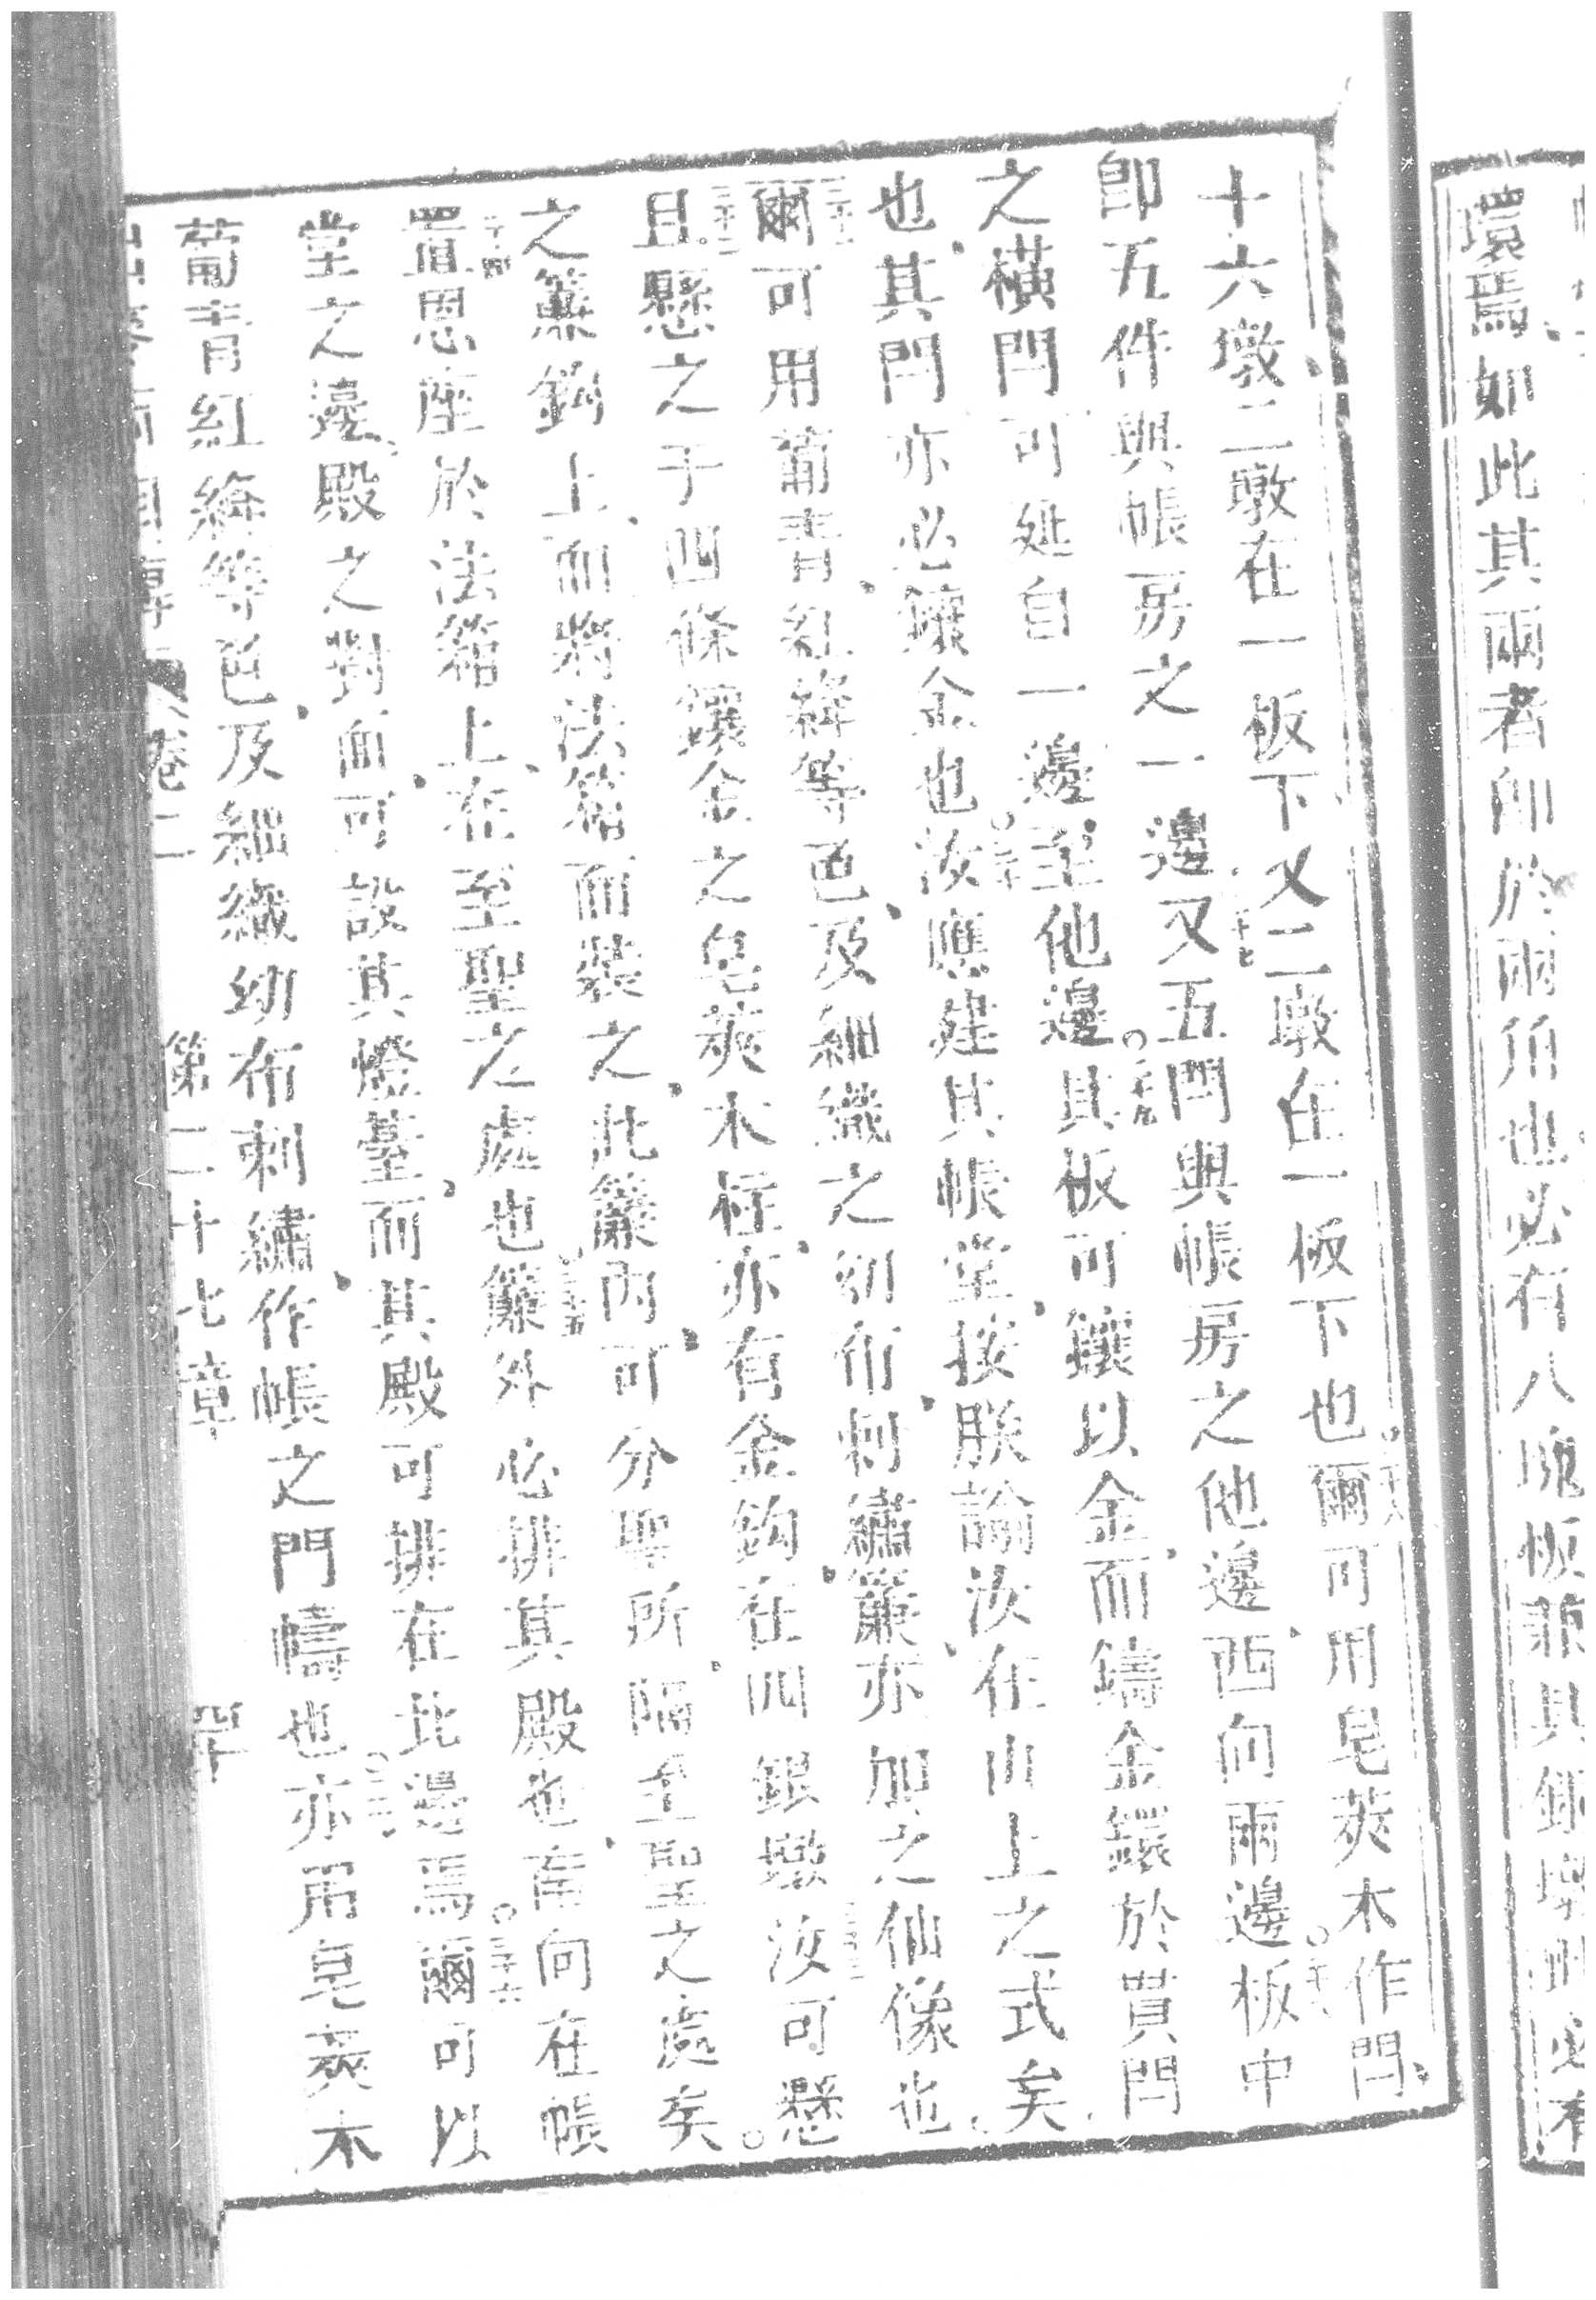 環焉如此其兩者卽於兩角也必有八塊板兼其銀墩
十六墩二墩在一板下又二墩在一板下也二十六爾可用皂莢木作閂
卽五件與帳房之一邊二十七又五閂與帳房之他邊西向兩邊板中
之橫閂可延自一邊至他邊二十九其板可鑲以金而鑄金鐶於貫閂
也其閂亦必鑲金也三十汝應建其帳堂按朕諭汝在山上之式矣
三十一爾可用葡青紅絳等色及細織之幼布刺繡簾亦加之仙像也
三十二且懸之于四條鑲金之皂莢木柱亦有金鈎在四銀墩三十三汝可懸
之簾鈎上而將法箱而裝之此簾內可分聖所隔至聖之處矣
三十四置恩座於法箱上在至聖之處也三十五簾外必排其殿也南向在帳
堂之邊殿之對面可設其燈臺而其殿可排在此邊焉三十六爾可以
葡青紅絳等色及細織幼布刺繡作帳之門幬也三十七亦用皂莢木
卷二 第二十七章